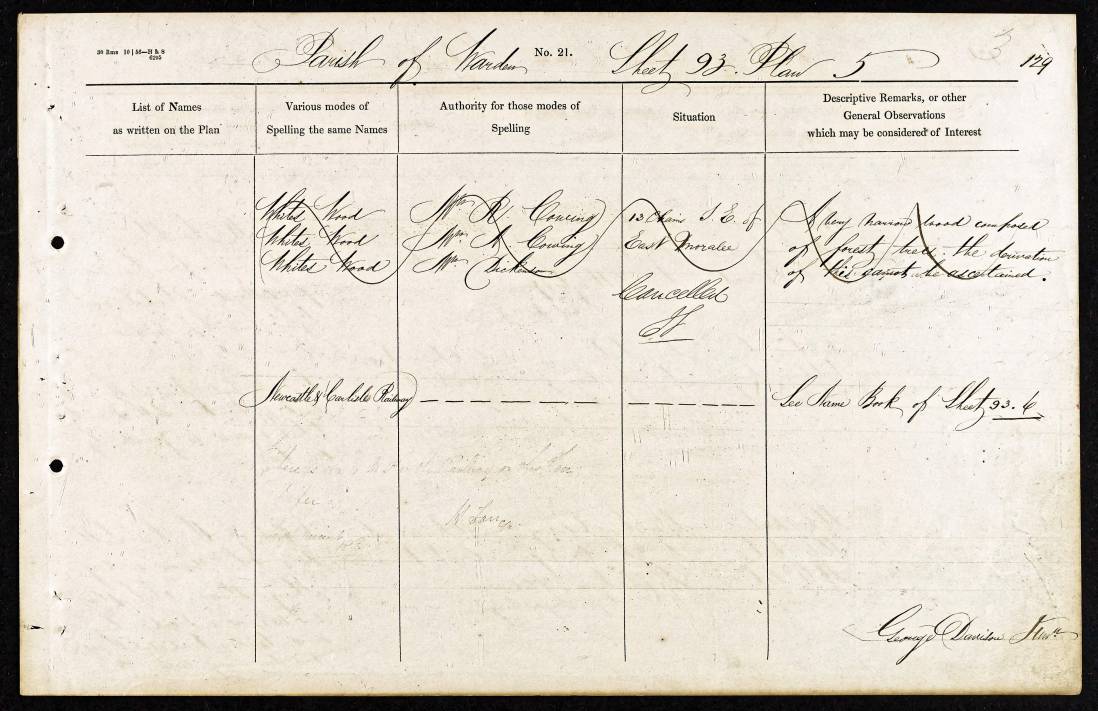 30 Rms 10 | 56—H & S
6295
Parish of Warden No. 21. Sheet 93. Plan 5
129
List of Names
as written on the Plan
Various modes of
Spelling the same Names
Authority for those modes of
Spelling
Situation
Descriptive Remarks, or other
General Observations
which may be considered of Interest
Whites Wood
Whites Wood
Whites Wood
Mr. R. Cowing
Mr. N. Cowing
Mr. Dickinson
13 Chains S.E. of
East Moralee
Cancelled
A very narrow wood composed
of forest trees the derivation
of this cannot be ascertained.
Newcastle & Carlisle Railway
See Name Book of Sheet 93. 6
There is
George Davison